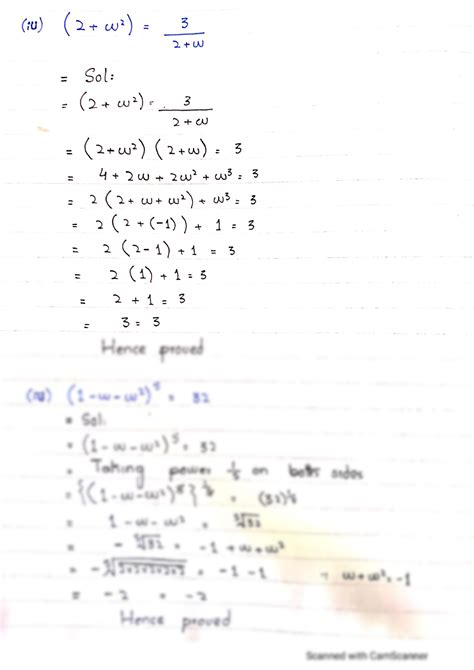 (iv) (2 + ω²) = 3/(2+ω)
= Sol:
= (2 + ω²) = 3/(2+ω)
= (2+ω²) (2+ω) = 3
= 4 + 2ω + 2ω² + ω³ = 3
= 2(2+ω+ω²) + ω³ = 3
= 2(2+(-1)) + 1 = 3
= 2(2-1) + 1 = 3
= 2(1) + 1 = 3
= 2 + 1 = 3
= 3 = 3
Hence proved
(1-ω-ω²)⁵ = 32
= Sol:
= (1-ω-ω²)⁵ = 32
= Taking power 1/5 on both sides
= {(1-ω-ω²)⁵}^1/5 = (32)^1/5
= 1-ω-ω² = ⁵√32
= -⁵√32 = -1+ω+ω²
= -⁵√2×2×2×2×2 = -1-1 ∵ ω+ω²=-1
= -2 = -2
Hence proved
Scanned with CamScanner